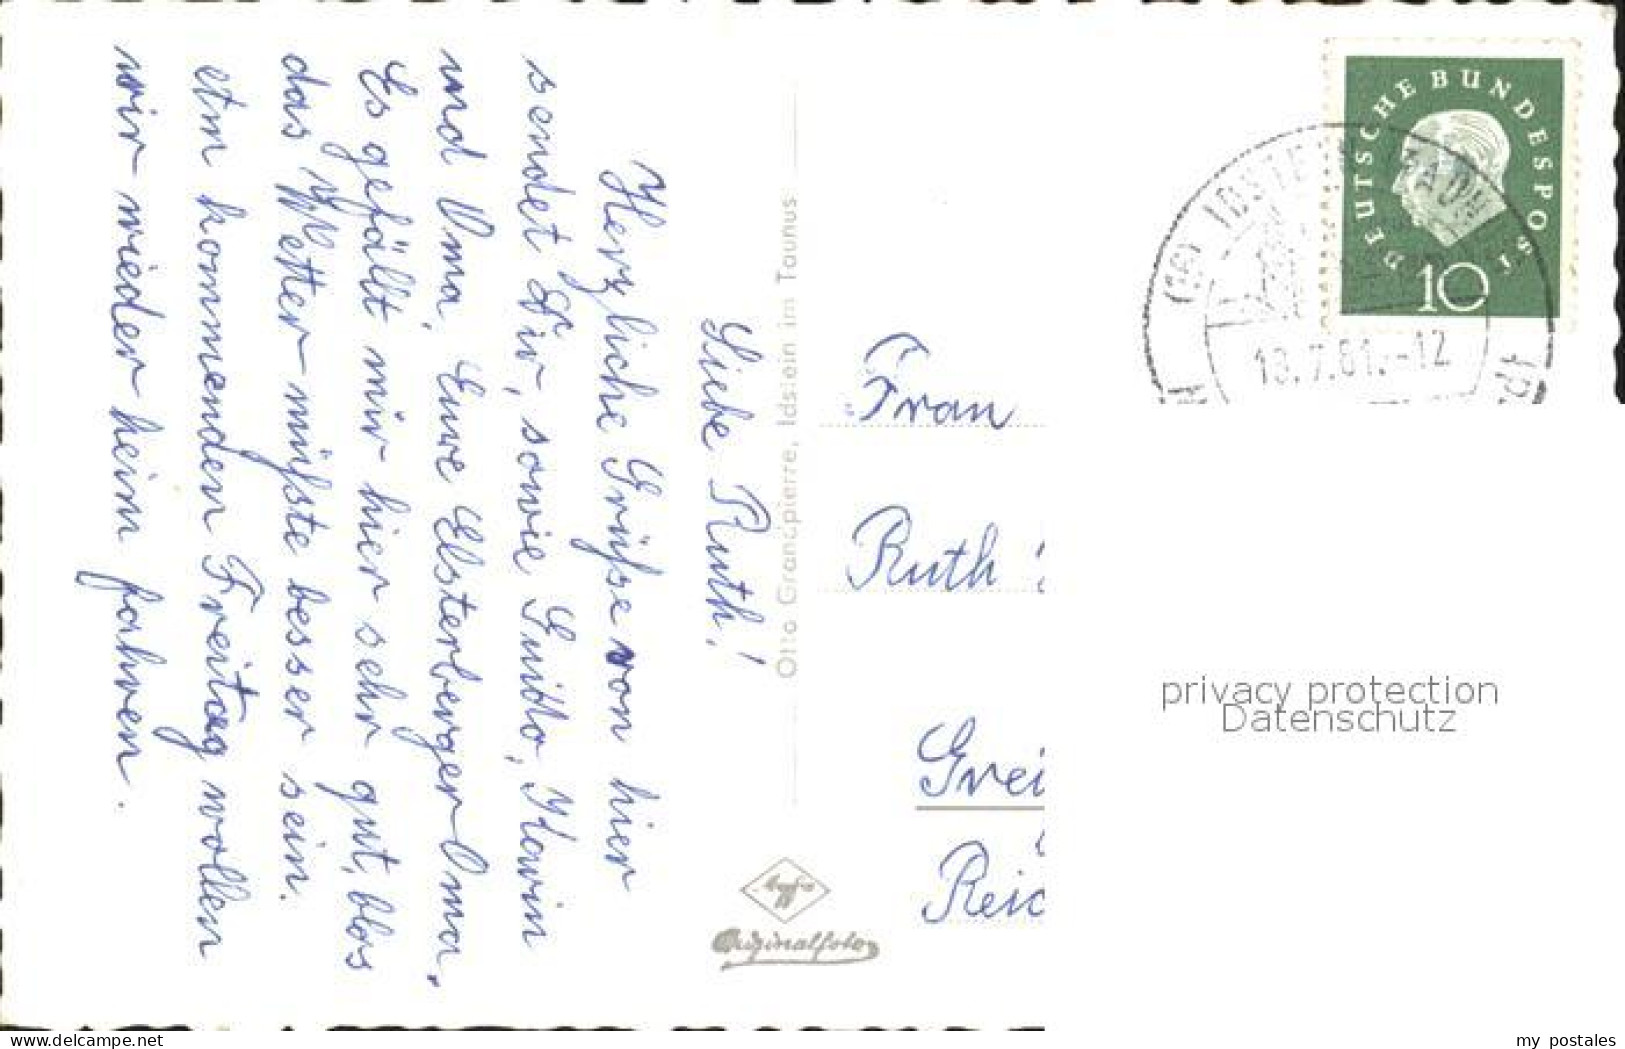 Liebe Ruth!
Herzliche Grüße von hier
sendet Dir, sowie Guido, Karin
und Oma, Eure Elsterberger Oma.
Es gefällt mir hier sehr gut, blos
das Wetter müßte besser sein.
etm kommenden Freitag wollen
wir wieder heim fahren.
Otto Grandpierre, Idstein im Taunus
Agfa
Originalfoto
DEUTSCHE BUNDESPOST
10
(16) IDSTEIN
13.7.61.-12
Frau
Ruth
Grei
Reic
privacy protection
Datenschutz
www.delcampe.net
my_postales